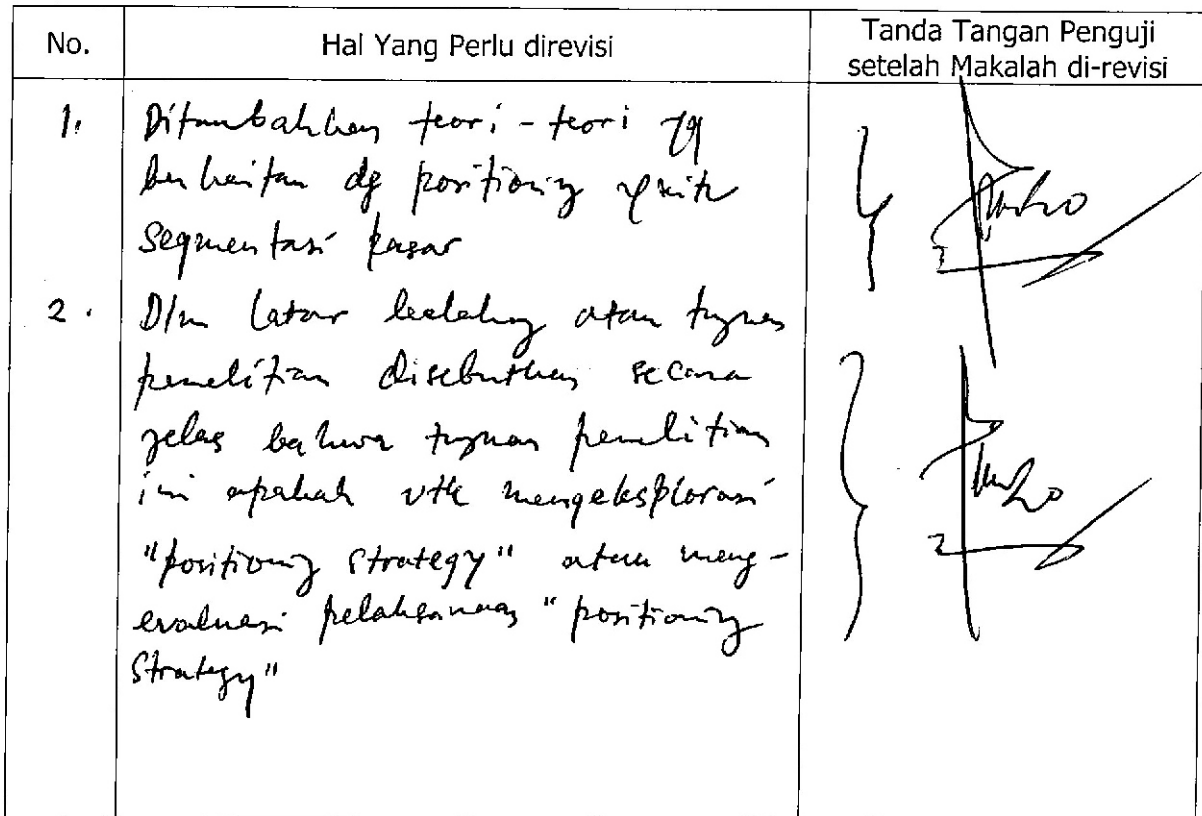 No.
Hal Yang Perlu direvisi
Tanda Tangan Penguji
setelah Makalah di-revisi
1.
Ditambahkan teori-teori yg
berkaitan dg positioning
segmentasi pasar
2.
Dlm latar belakang atau tujuan
penelitian disebutkan secara
jelas bahwa tujuan penelitian
ini apakah utk mengeksplorasi
"positioning strategy" atau meng-
evaluasi pelaksanaan "positioning
Strategy"